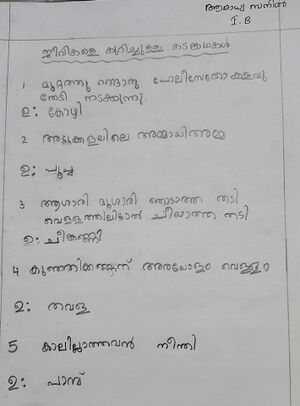 ആരാധ്യ സനിൽ
I. B
ജീവികളെ കുറിച്ചുള്ള കടങ്കഥകൾ
1 മുറ്റത്തു ഒരു പോലീസേതോ കളവു
തേടി നടക്കുന്നു.
ഉ: കോഴി
2 അടുക്കളയിലെ അമ്മായിഅമ്മ
ഉ: പൂച്ച
3 ആശാരി മൂശാരി തൊടാത്ത തടി
വെള്ളത്തിലിട്ടാൽ ചീയാത്ത തടി
ഉ: ചീങ്കണ്ണി
4 കുഞ്ഞിക്കണ്ണന് അരയോളം വെള്ളം
ഉ: തവള
5 കാലില്ലാത്തവൻ നീന്തി
ഉ: പാമ്പ്